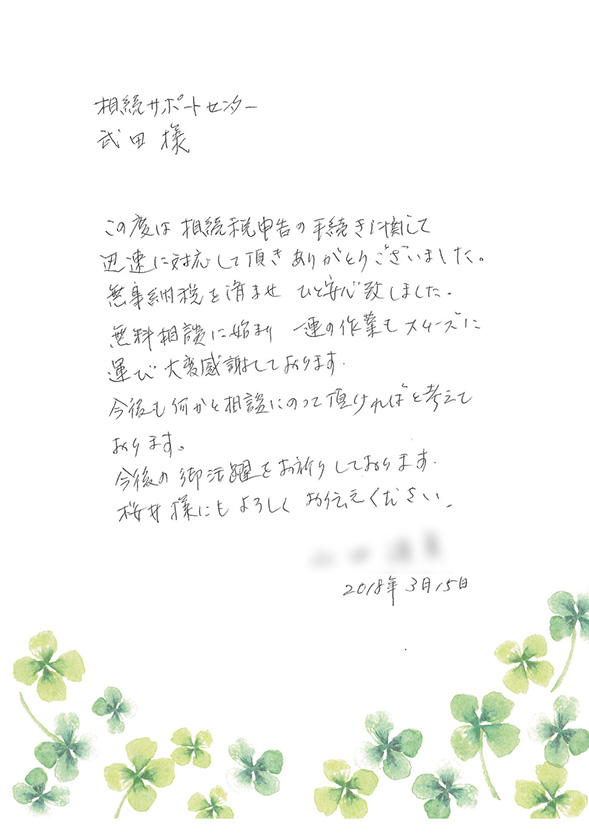 相続サポートセンター
武田 様
この度は 相続税申告の手続きに関して
迅速に対応して頂き ありがとうございました。
無事納税を済ませ ひと安心致しました。
無料相談に始まり 一連の作業も スムーズに
運び 大変感謝しております。
今後も何かと相談にのって頂ければと考えて
おります。
今後の御活躍をお祈りしております。
桜井様にも よろしく お伝えください。
2018年3月15日